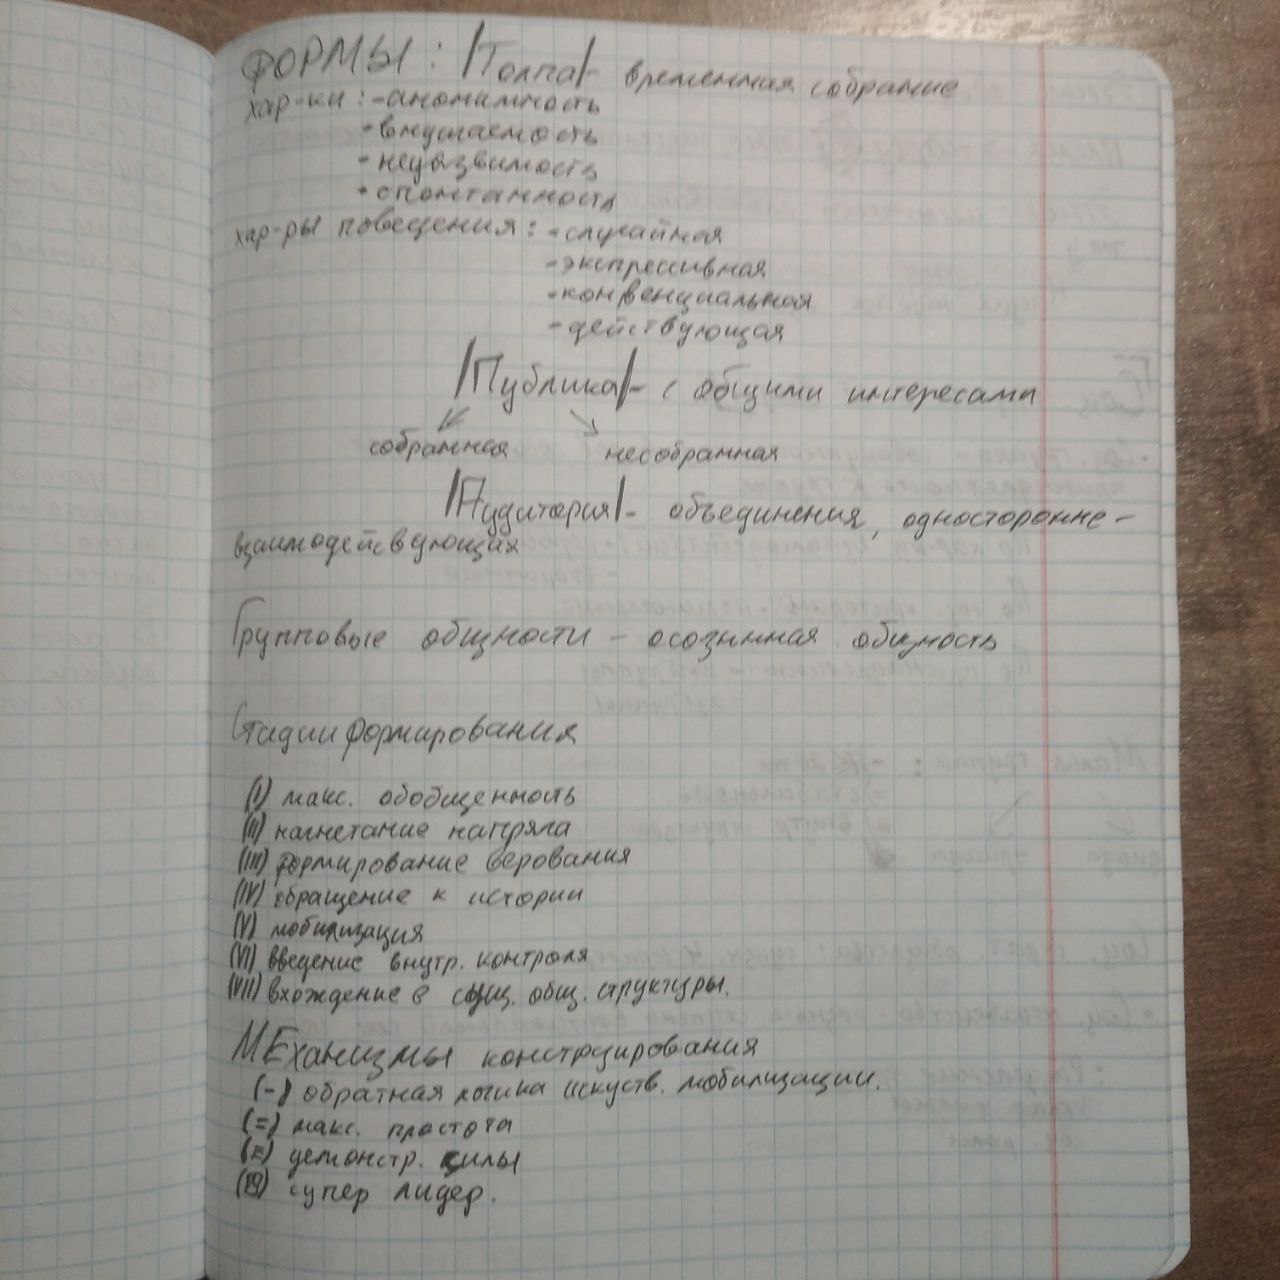 ФОРМЫ: |Толпа|- временная собрание
хар-ки: -анонимность
-внушаемость
-неуязвимость
•спонтанность
хар-ры поведения: -случайная
-экспрессивная
-конвенциальная
-действующая
|Публика|- с общими интересами
собранная несобранная
|Аудитория|- объединения, односторонне-
взаимодействующих
Групповые общности - осознная общность
Стадии формирования
(I) макс. обобщенность
(II) нагнетание напряга
(III) формирование верования
(IV) обращение к истории
(V) мобилизация
(VI) введение внутр. контроля
(VII) вхождение в сущ. общ. структуры.
МЕханизмы конструирования
(-) обратная логика искуств. мобилизации.
(=) макс. простота
(≡) демонстр. силы
супер лидер.